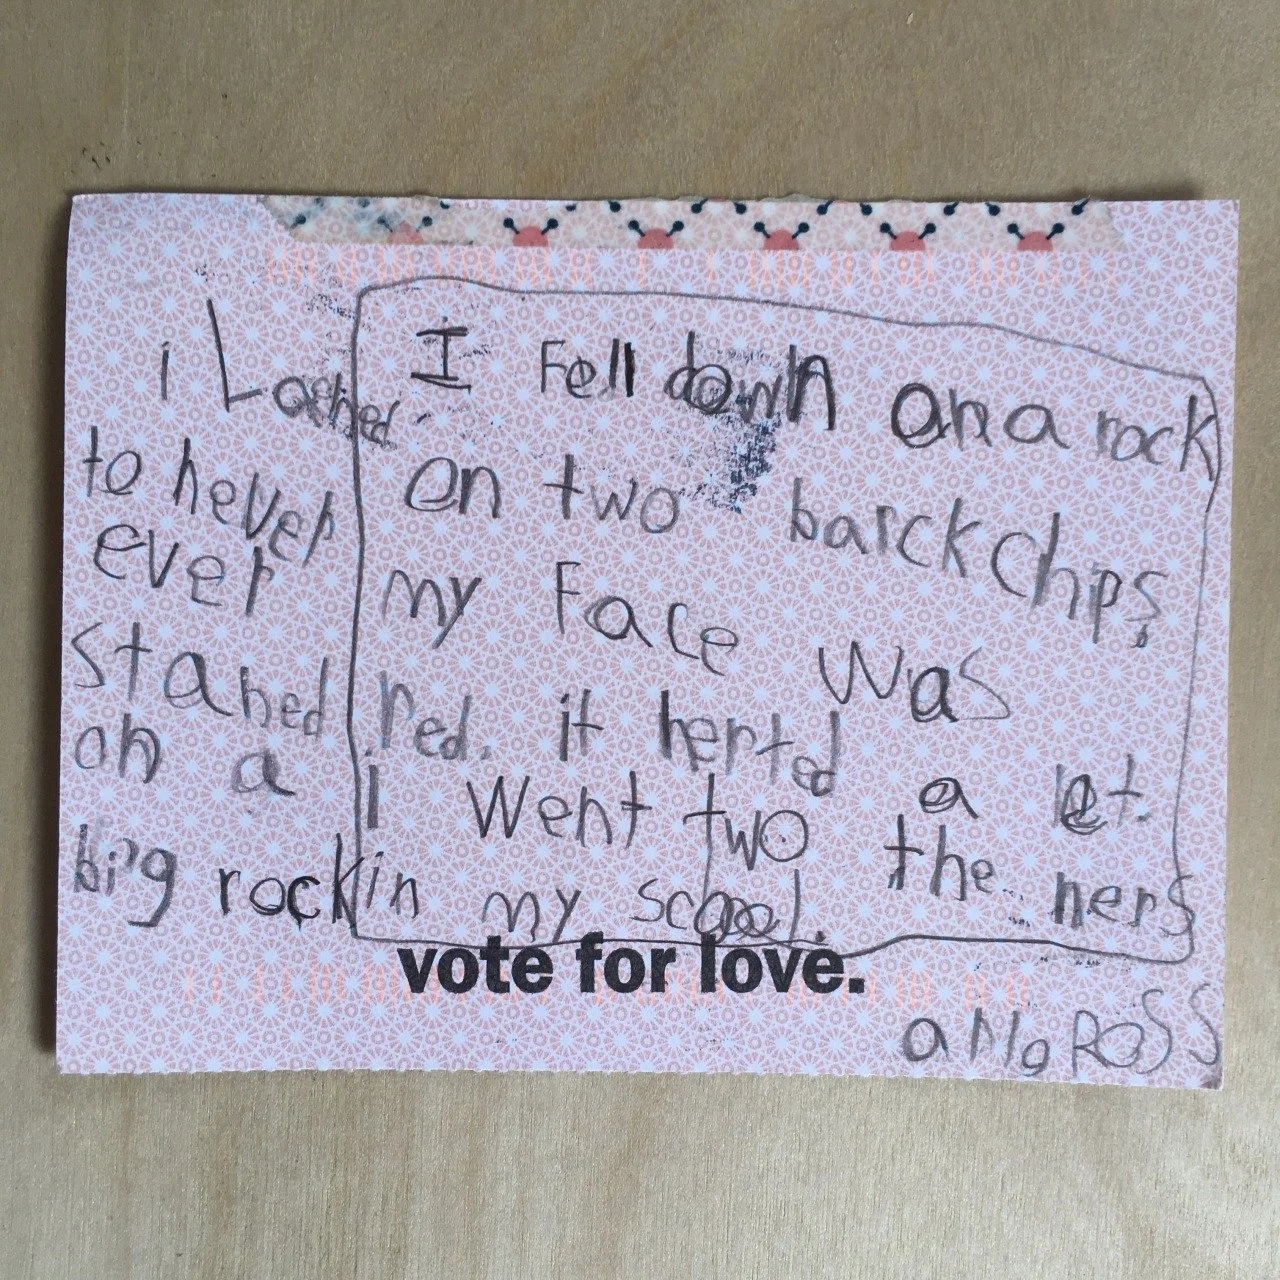 I Fell down on a rock
on two barck chips
my Face was
red. it herted a lot.
i went two the ners
in my scool.
i Larned
to never
ever
staned
on a
big rock
vote for love.
arlo ROSS